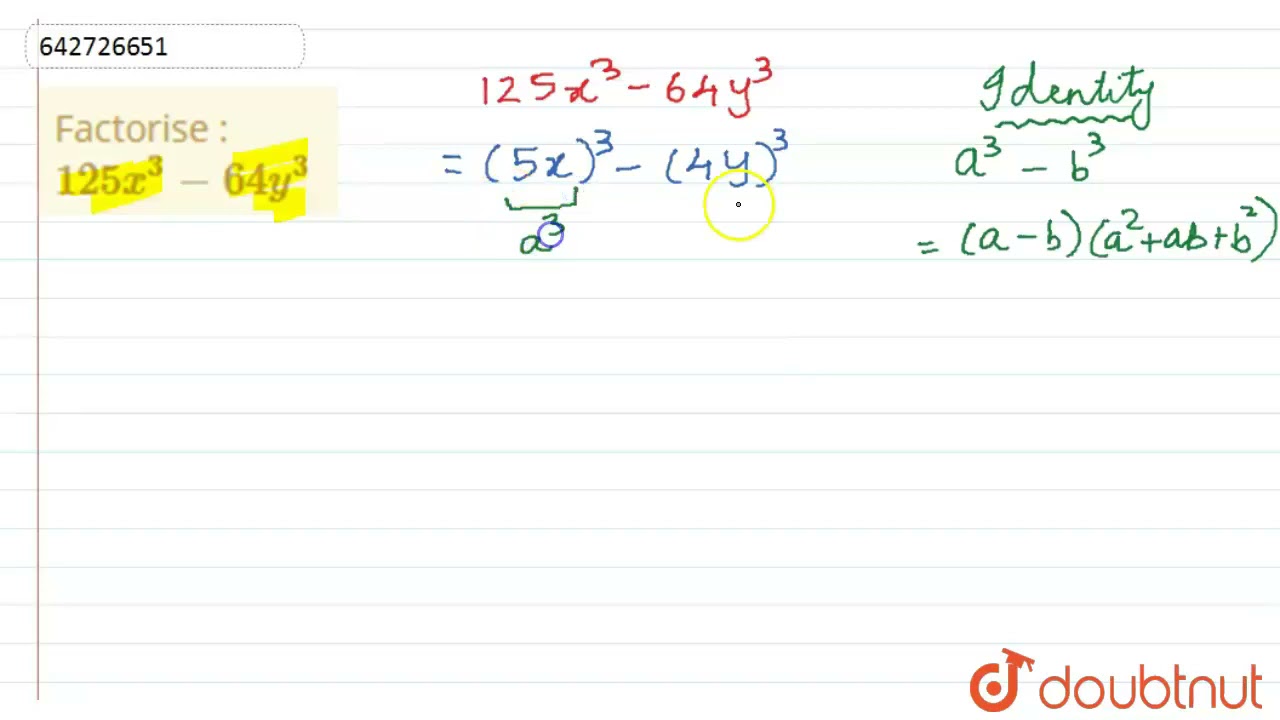 642726651
Factorise :
125x³ − 64y³
125x³ − 64y³
= (5x)³ − (4y)³
a³
Identity
a³ − b³
= (a − b)(a² + ab + b²)
doubtnut